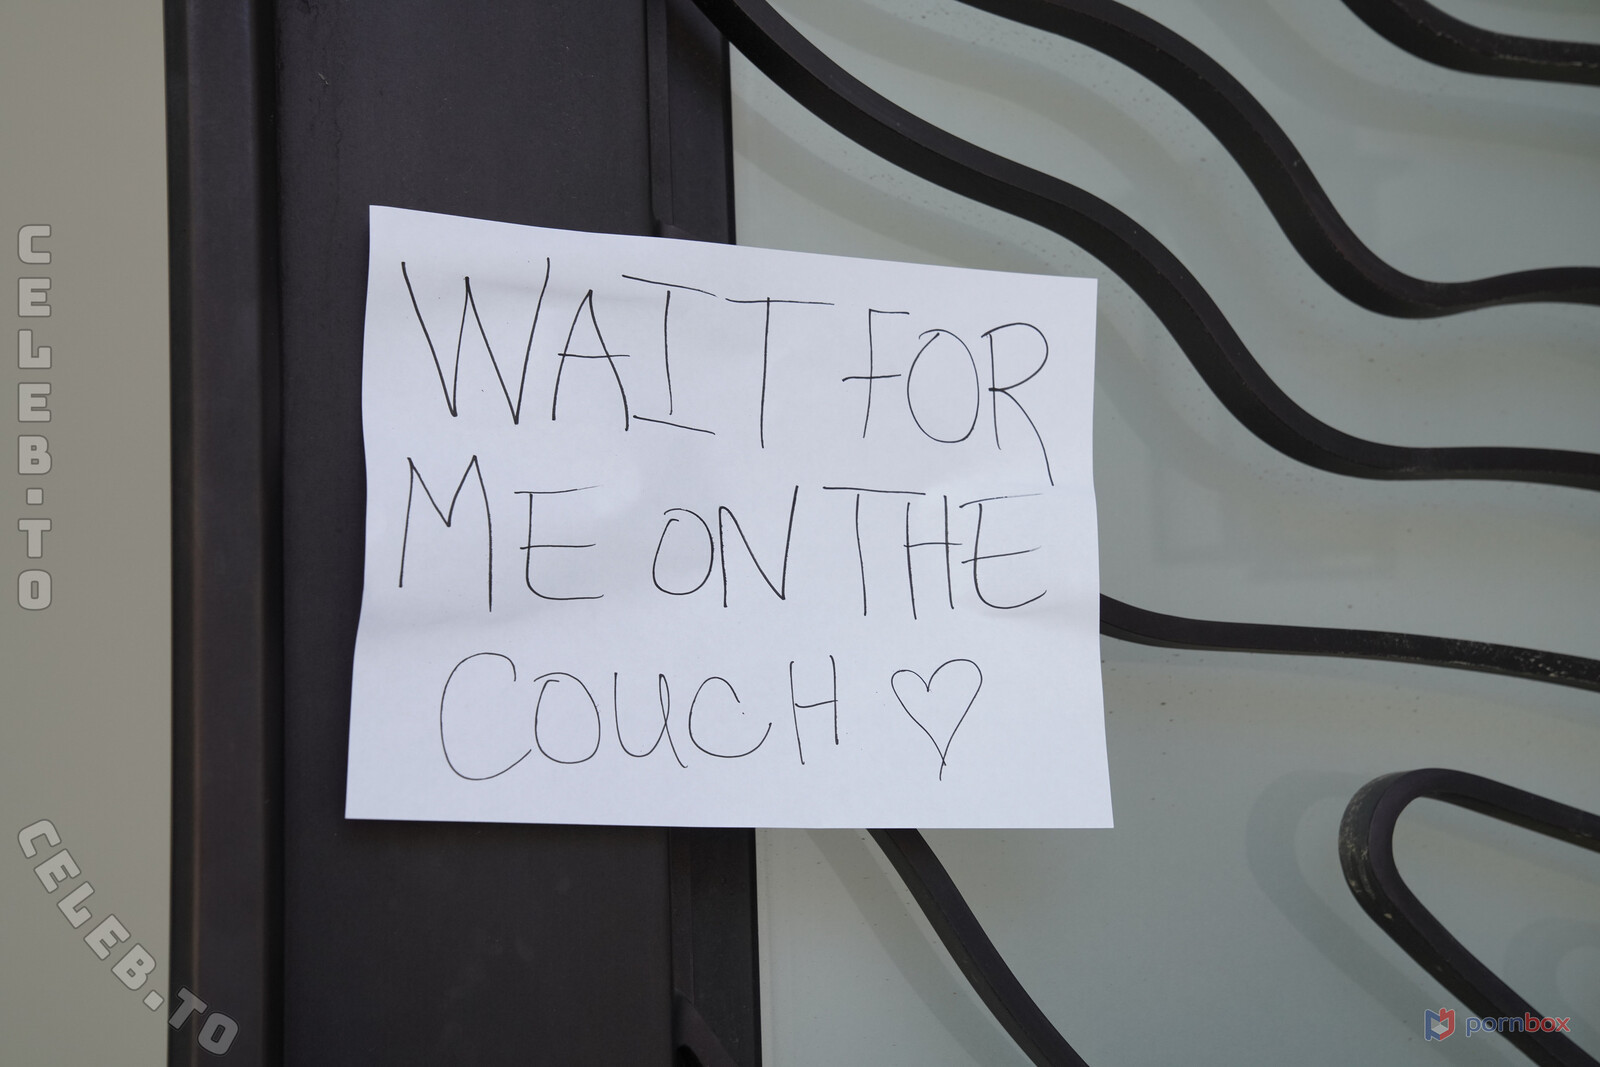 WAIT FOR
ME ON THE
COUCH ♡
CELEB.TO
CELEB.TO
pornbox